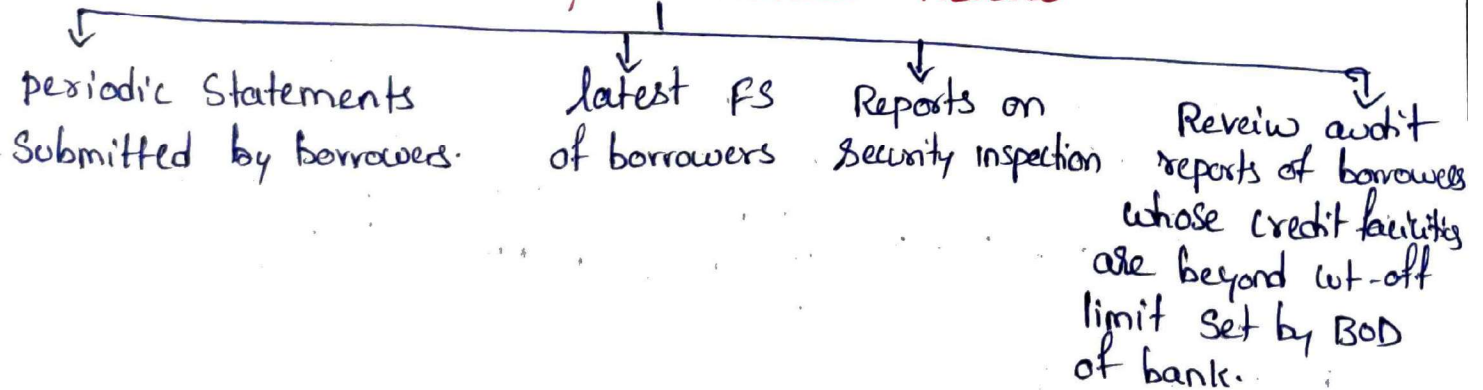 periodic Statements
Submitted by borrowers.
latest FS
of borrowers
Reports on
Security inspection
Reveiw audit
reports of borrowers
whose credit facilities
are beyond cut-off
limit set by BOD
of bank.